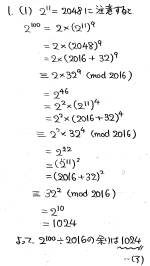 1. (1) 2¹¹ = 2048 に注意すると
2¹⁰⁰ = 2×(2¹¹)⁹
= 2×(2048)⁹
= 2×(2016+32)⁹
≡ 2×32⁹ (mod 2016)
= 2⁴⁶
= 2²×(2¹¹)⁴
= 2²×(2016+32)⁴
≡ 2²×32⁴ (mod 2016)
= 2²²
= (2¹¹)²
= (2016+32)²
≡ 32² (mod 2016)
= 2¹⁰
= 1024
よって、2¹⁰⁰÷2016の余りは1024